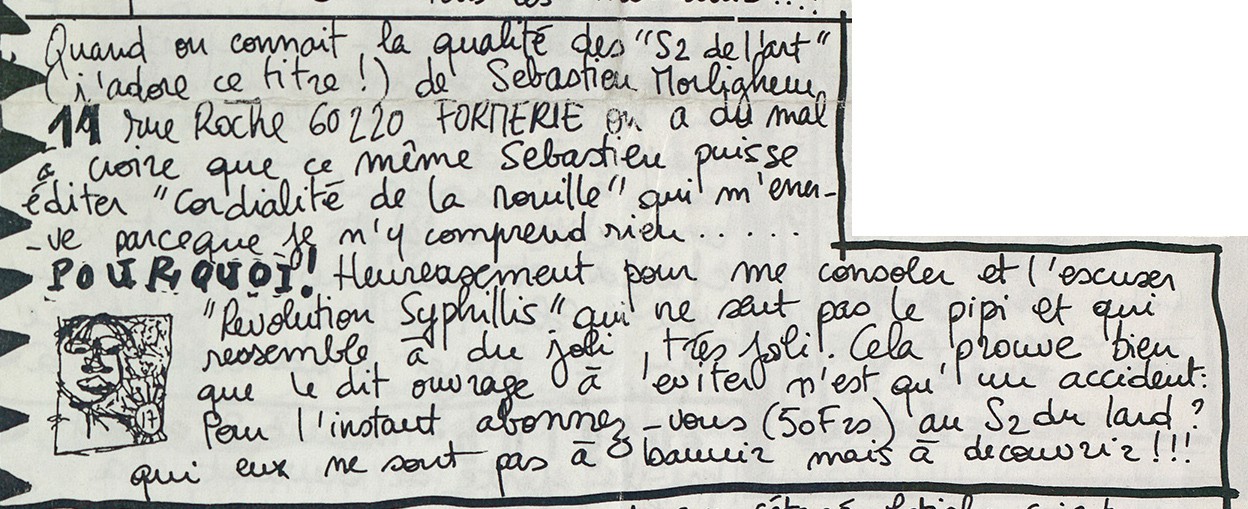 Quand on connait la qualité des "S2 de l'art"
(j'adore ce titre !) de Sebastien Morlighem
11 rue Roche 60220 FORMERIE on a du mal
a croire que ce même Sebastien puisse
éditer "Cordialité de la rouille" qui m'ener-
-ve parceque je n'y comprend rien.....
POURQUOI! Heureusement pour me consoler et l'escuser
"Revolution Syphillis" qui ne sent pas le pipi et qui
ressemble à du joli, très joli!. Cela prouve bien
que le dit ouvrage à eviter n'est qu'un accident:
Pour l'instant abonnez-vous (50F2s) au S2 du lard?
qui eux ne sont pas à bannir mais à decouvrir!!!
17